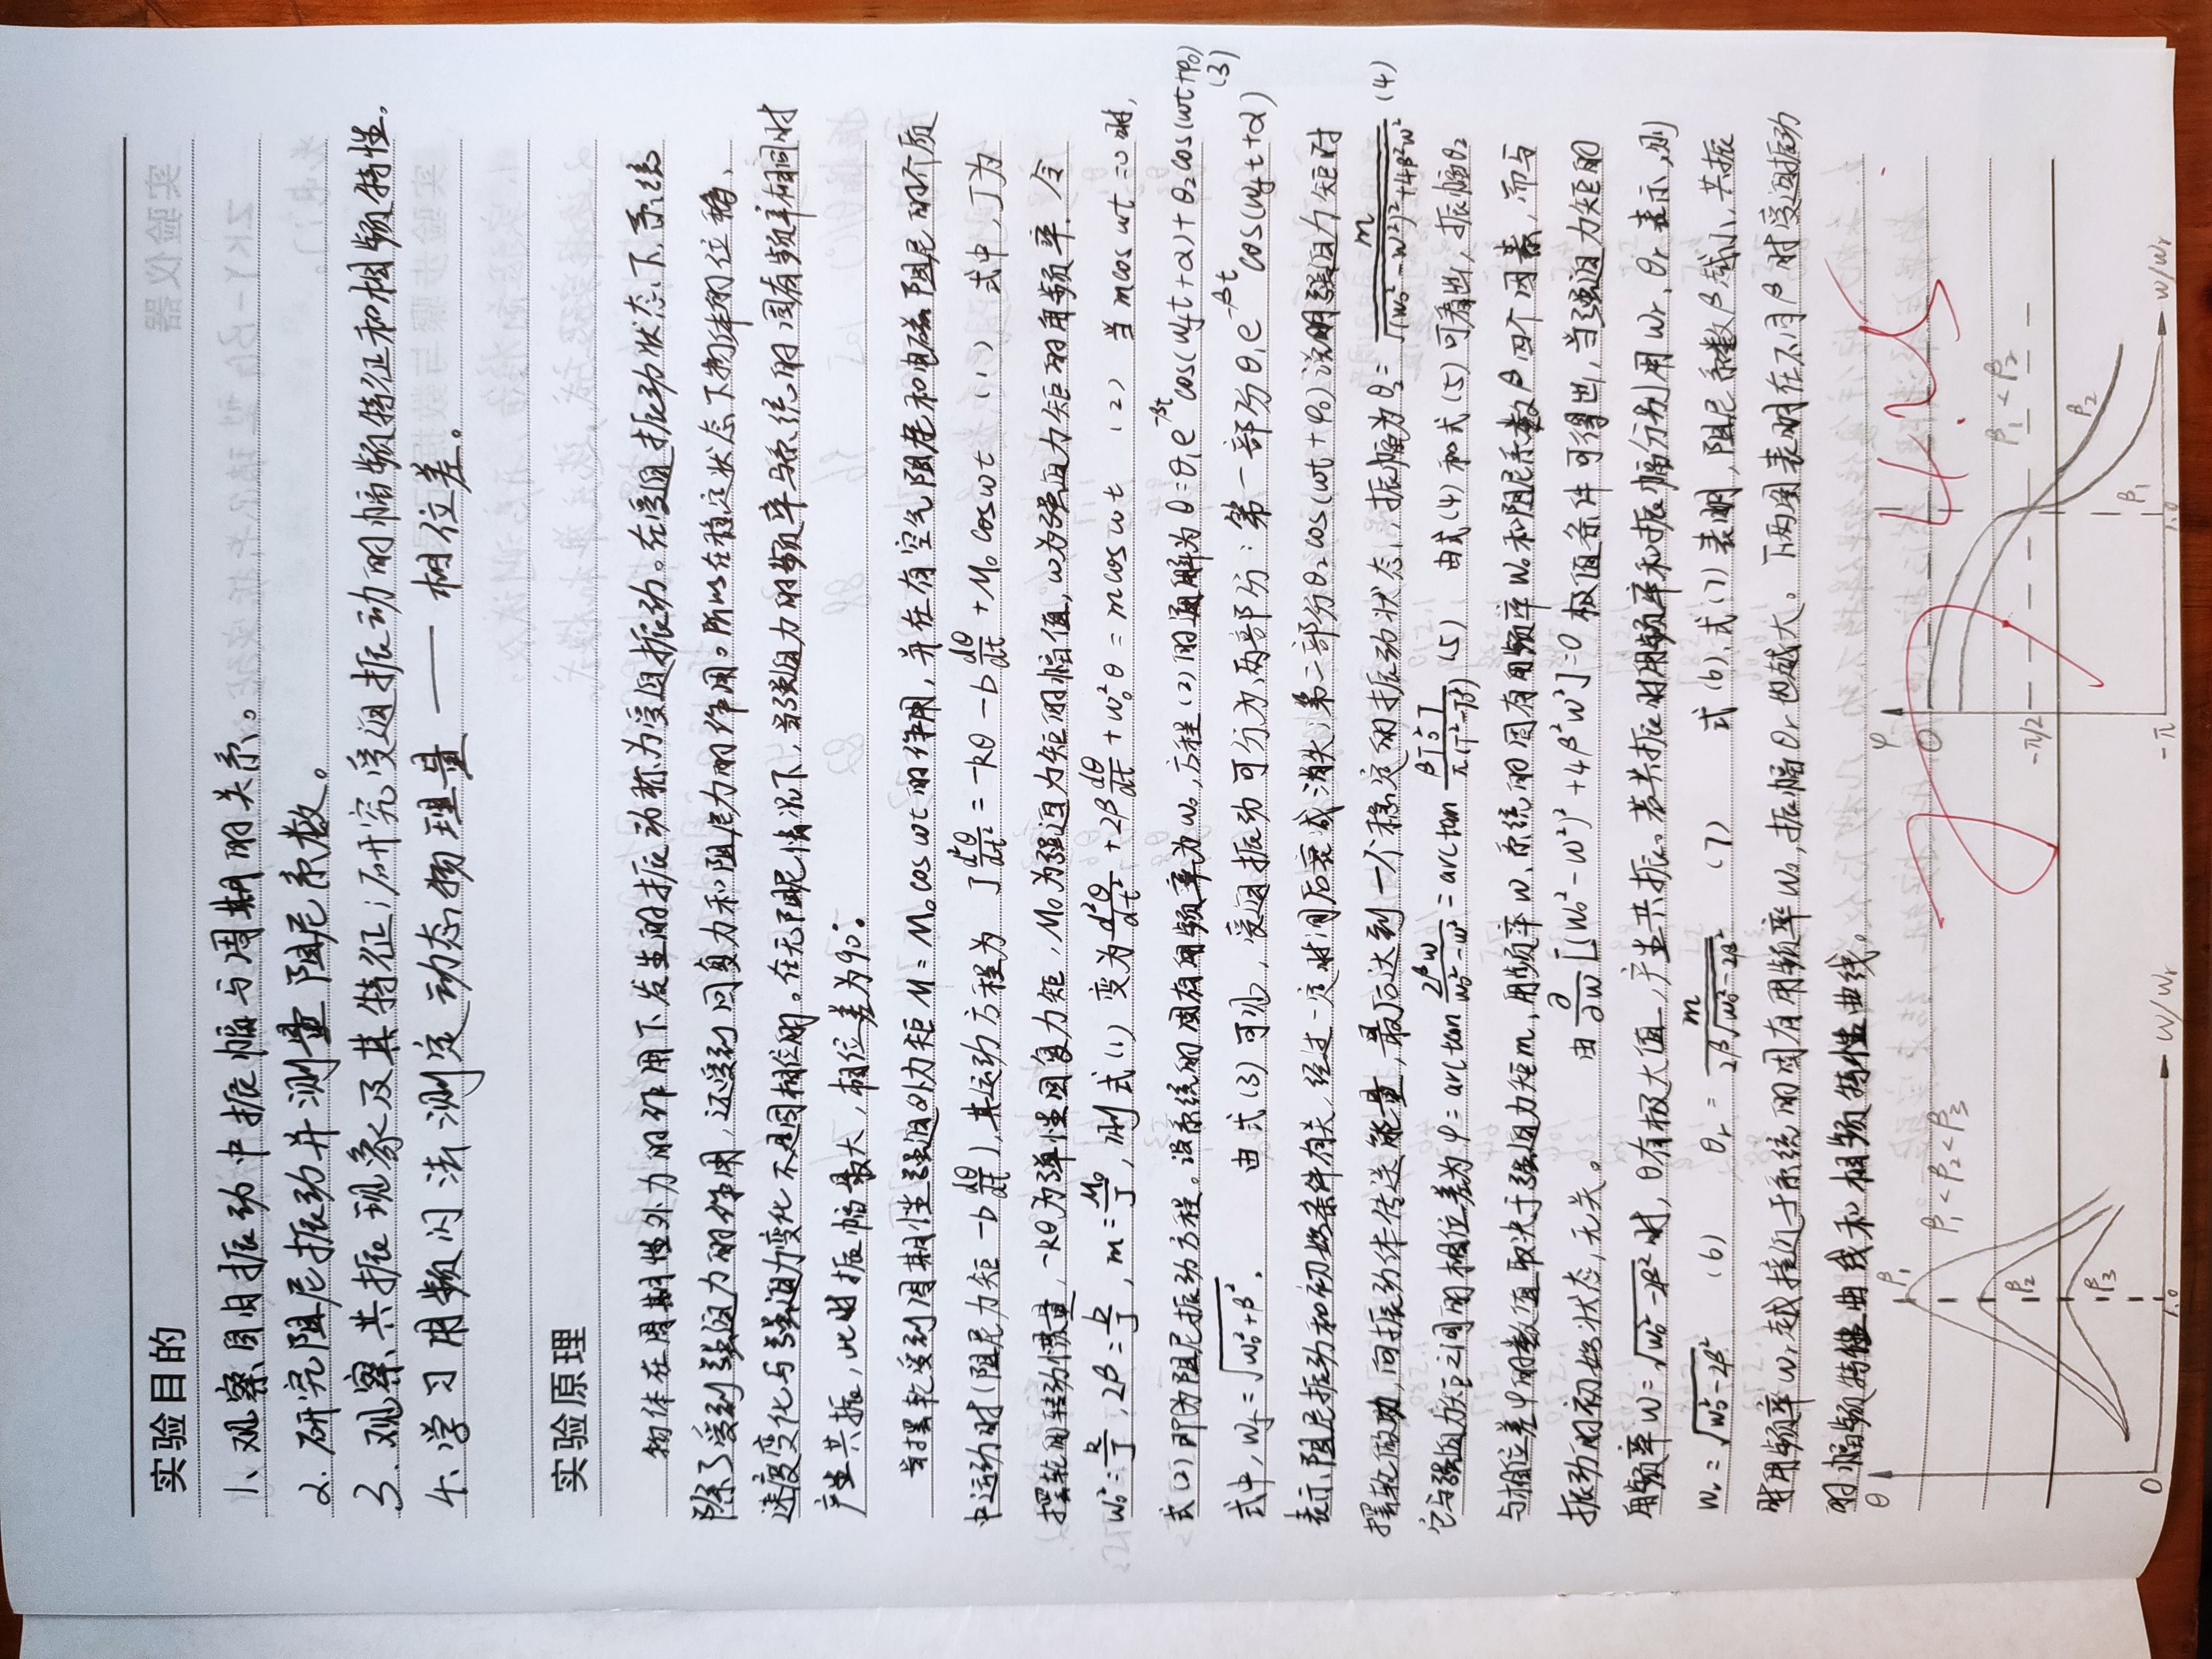 实验目的
1、观察周自振动中振幅与周期的关系。
2. 研究阻尼振动并测量阻尼系数。
3. 观察共振现象及其特征；研究受迫振动的幅频特征和相频特性。
4. 学习用频闪法测定动态物理量——相位差。
实验原理
物体在周期性外力的作用下发生的振动称为受迫振动。在受迫振动状态下，系统
除了受到强迫力的作用，还受到回复力和阻尼力的作用。所以在稳定状态下物体的位移、
速度变化与强迫力变化不是同相位的。在无阻尼情况下，当强迫力的频率与系统的固有频率相同时
产生共振，此时振幅最大，相位差为90°。
当摆轮受到周期性强迫外力矩 M = M₀ cos wt 的作用，并在有空气阻尼和电磁阻尼的介质
中运动时（阻尼力矩 -b dθ/dt），其运动方程为 J d²θ/dt² = -kθ - b dθ/dt + M₀ cos wt (1) 式中，J为
摆轮的转动惯量，-kθ为弹性回复力矩，M₀为强迫力矩的幅值，w为强迫力矩的角频率. 令
w₀² = k/J，2β = b/J，m = M₀/J，则式(1)变为 d²θ/dt² + 2β dθ/dt + w₀²θ = m cos wt (2) 当 m cos wt = 0 时，
式(2)即为阻尼振动方程。设系统的固有角频率为w₀，方程(2)的通解为 θ = θ₁e^-βt cos(w_f t + α) + θ₂cos(wt + φ₀) (3)
式中，w_f = √(w₀² + β²). 由式(3)可见，受迫振动可分为两部分：第一部分 θ₁e^-βt cos(w_f t + α)
表示阻尼振动和初始条件有关，经过一定时间后衰减消失. 第二部分θ₂cos(wt + φ₀)说明强迫力矩对
摆轮做功，向振动体传送能量，最后达到一个稳定的振动状态，振幅为 θ₂ = m/√((w₀² - w²)² + 4β²w²) (4)
它与强迫力矩之间的相位差为 φ = arctan 2βw/(w₀² - w²) = arctan (5) 由式(4)和式(5)可看出，振幅θ₂
与相位差φ的数值取决于强迫力矩m，角频率w、系统的固有角频率w₀和阻尼系数β四个因素，而与
振动的初始状态无关。 由 ∂/∂w[(w₀² - w²)² + 4β²w²] = 0 极值条件可得出，当强迫力矩的
角频率 w = √(w₀² - 2β²) 时，θ有极大值，产生共振。若共振时角频率和振幅分别用w_r、θ_r表示，则
w_r = √(w₀² - 2β²) (6) θ_r = m/(2β√(w₀² - 2β²)) (7) 式(6)、式(7)表明，阻尼系数β越小，共振
时角频率w_r越接近于系统的固有角频率w₀，振幅θ_r也越大。下两图表明在不同β时受迫振动
的幅频特性曲线和相频特性曲线。
θ
β₁
β₂
β₃
β₁ < β₂ < β₃
0
1.0
w/w_r
φ
0
-π/2
-π
β₁ < β₂
β₂
β₁
1.0
w/w_r